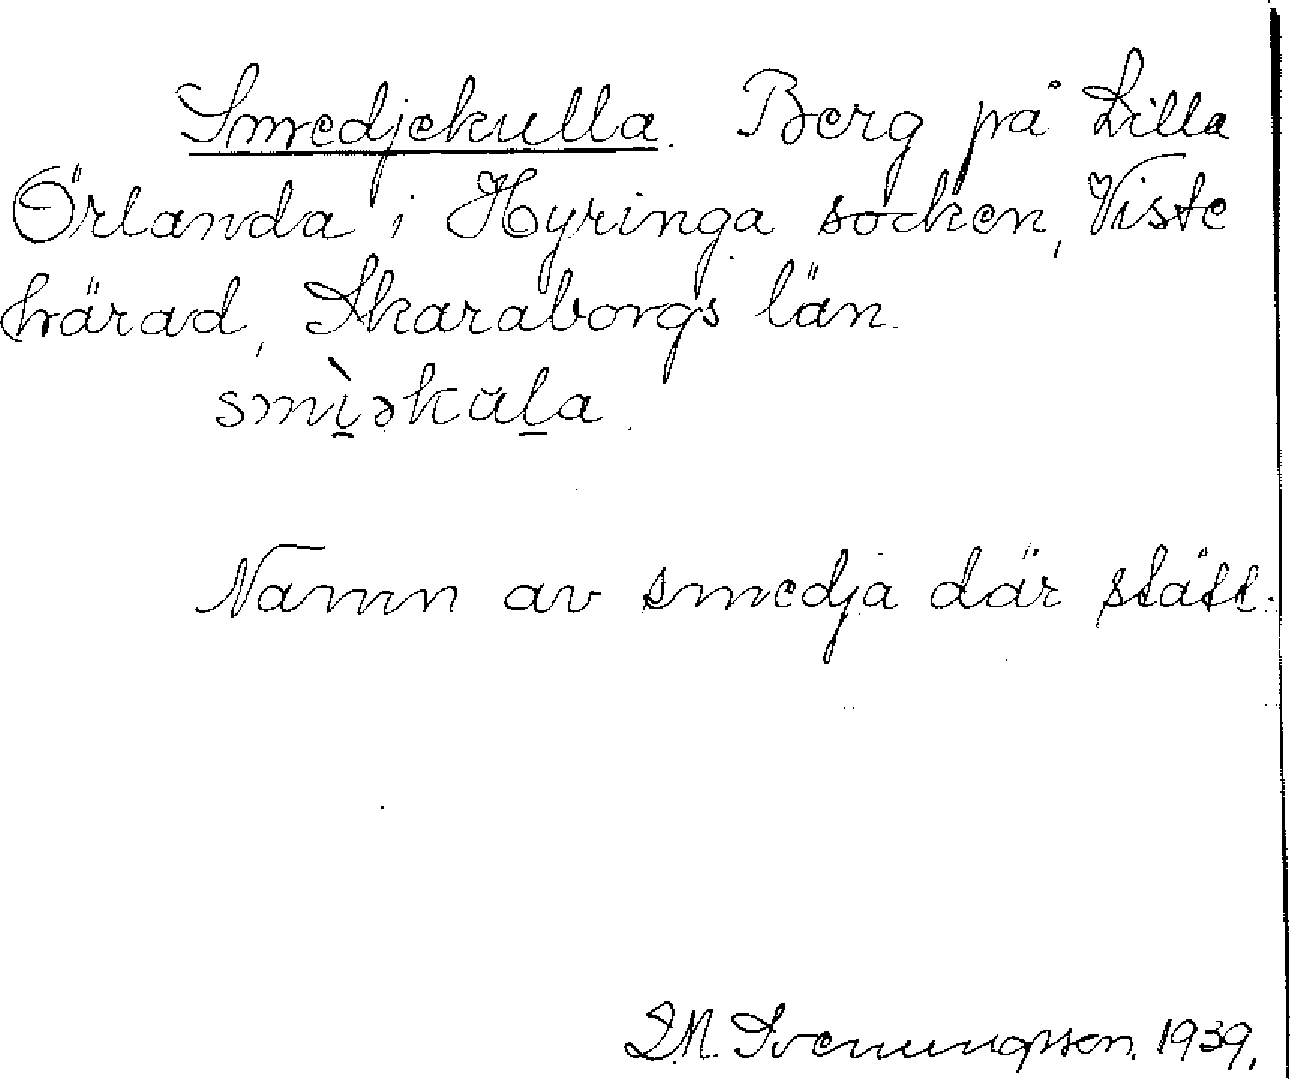 Smedjekulla. Berg på Lilla
Örlanda i Hyringa socken, Viste
härad, Skaraborgs län.
smì̱əkuḻa.
Namn av smedja där stått.
D.M. Svenungsson. 1939.